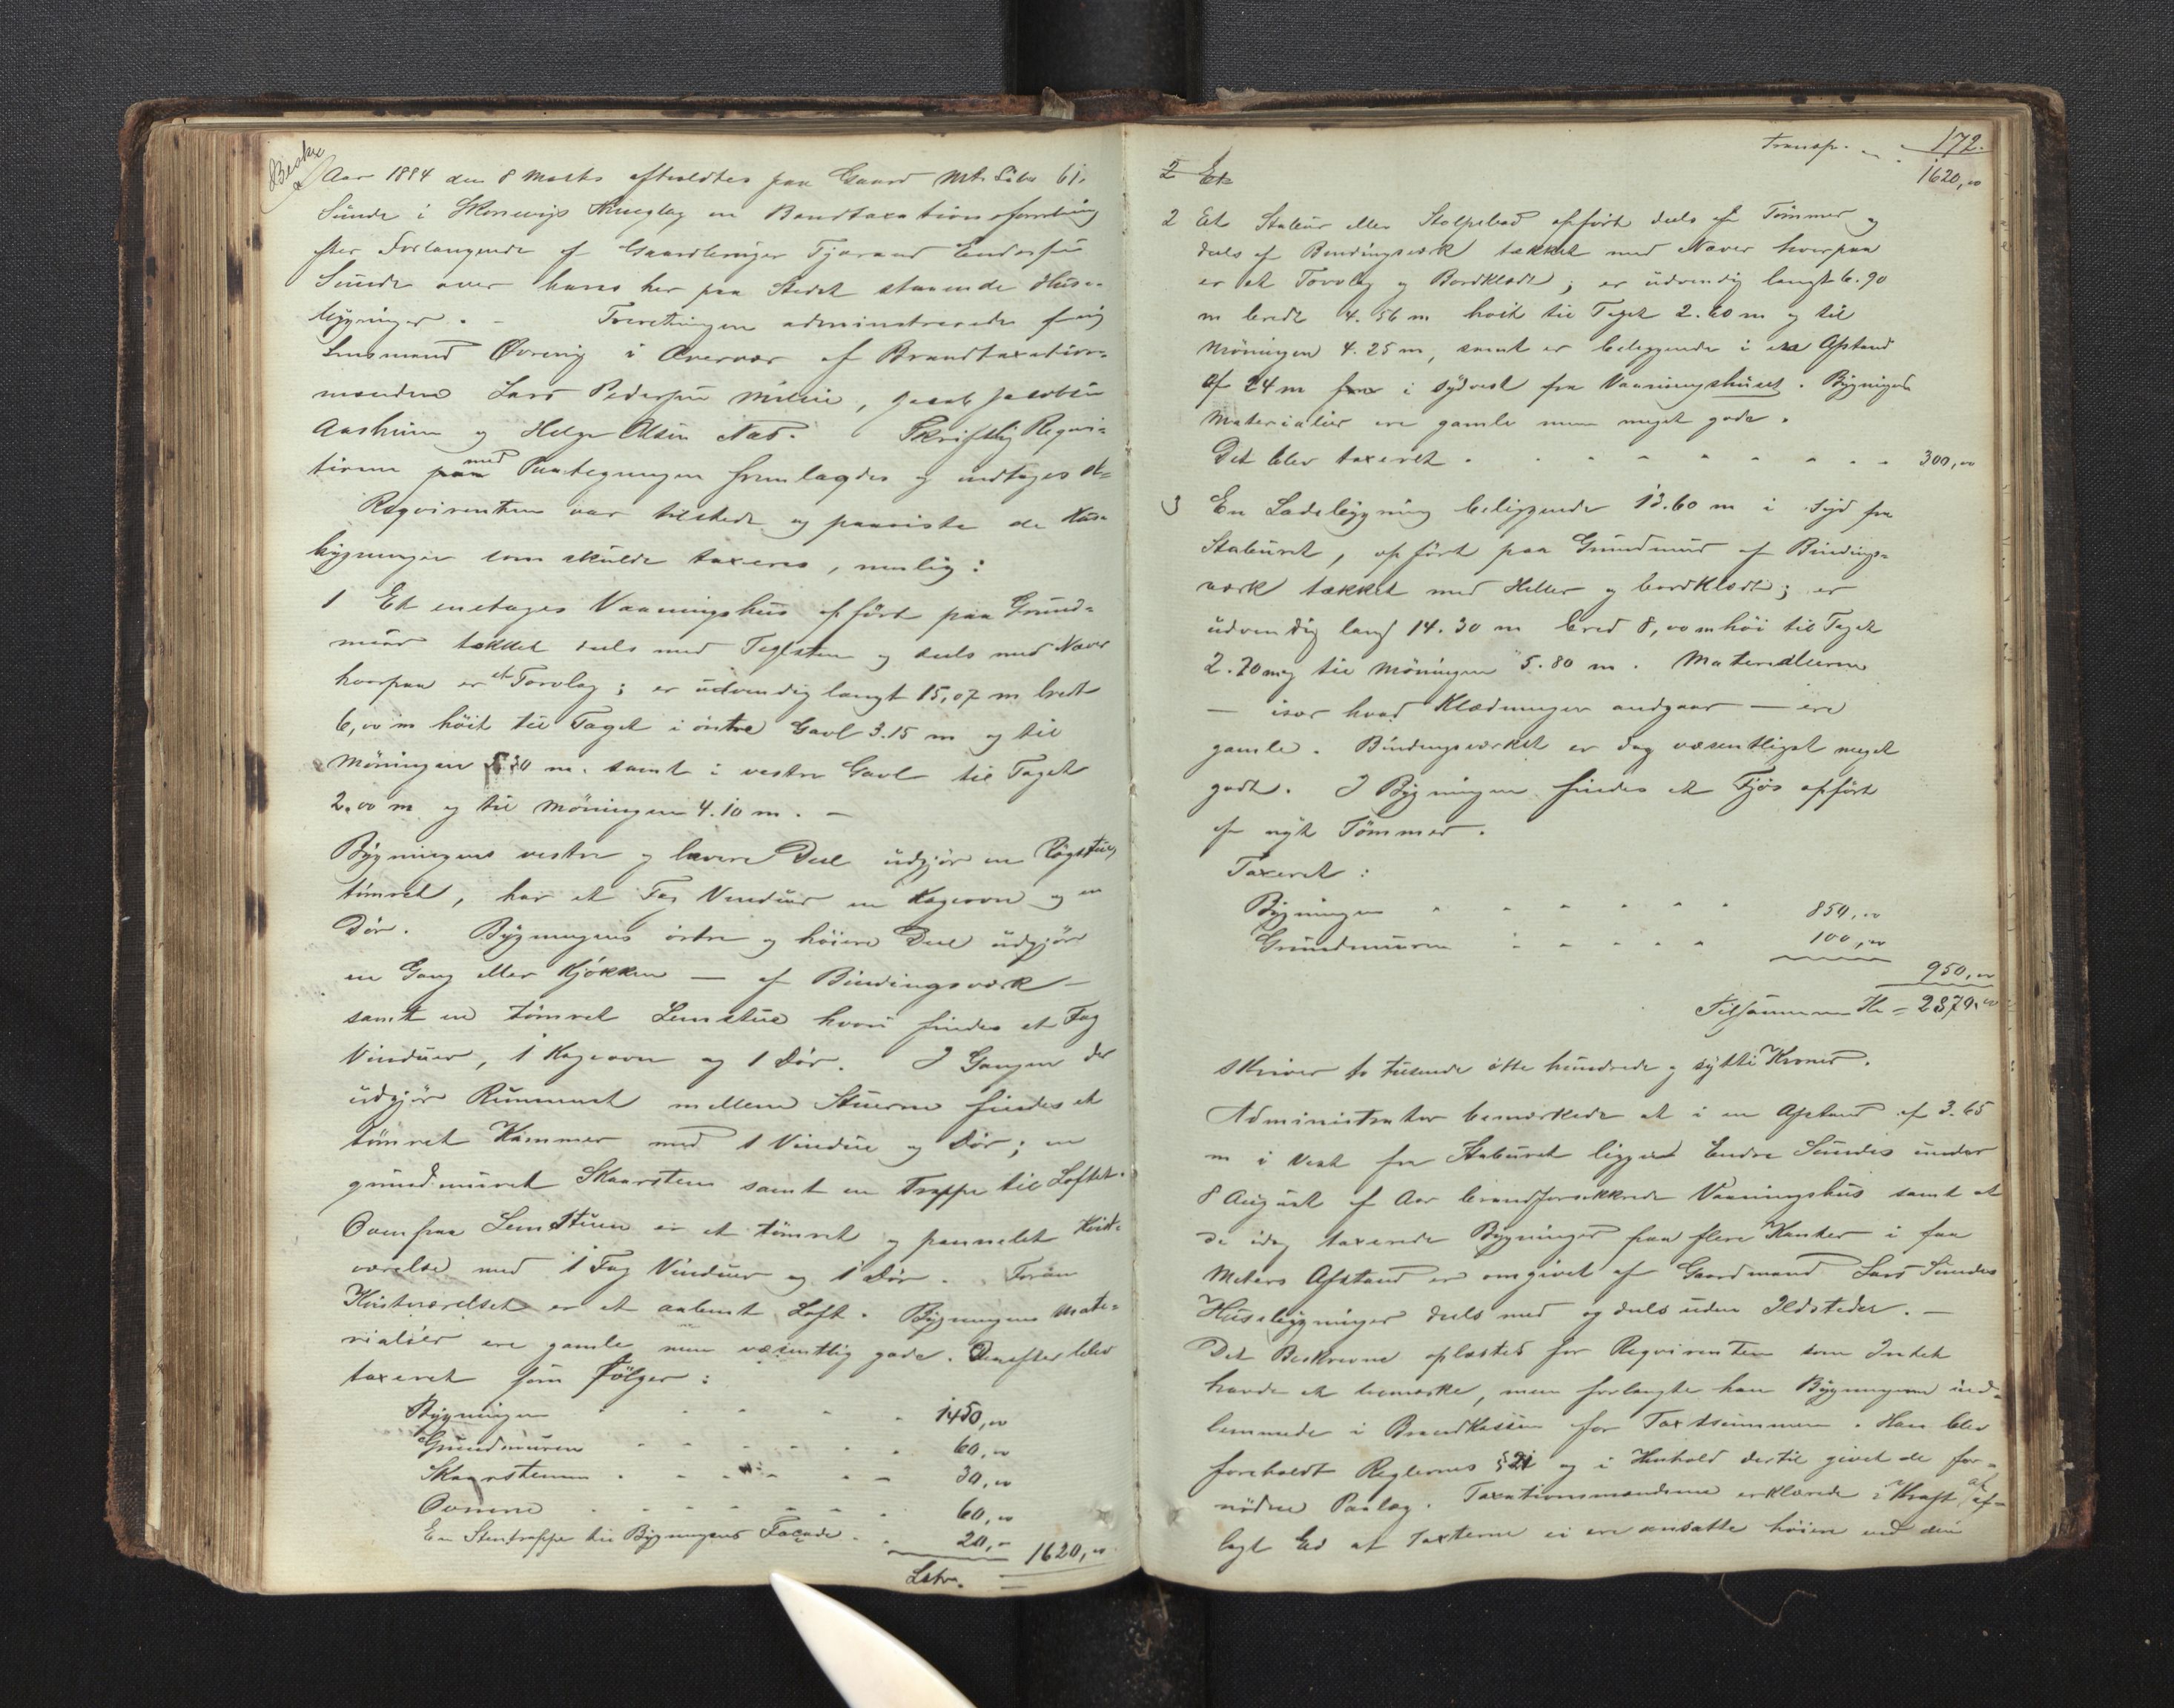 Beskr.
Aar 1884 den 8 Marts afholdtes paa Gaard Mt. Libr 61.
Sunde i Skonevigs Thinglag en Brandtaxationsforretning
efter Forlangende af Gaardbruger Tjerand Endresen
Sunde over hans her paa Stedet staaende Huse-
bygninger. - Forretningen administreredes af mig
Lensmand Øvrevig i Overvær af Brandtaxations-
mændene Lars Pedersen Milje, Jacob Jacobsen
Aasheim og Helge Olsen Næs. Skriftlig Requi-
sition paa med Paategningen fremlagdes og indtages st-
Reqvirenten var tilstede og paaviste de Huse-
bygninger som skulde taxeres, nemlig:
1 Et enetages Vaaningshus opført paa Grund-
muur tækket deels med Teglsten og deels med Næver
hvorpaa er et Torvlag; er udvendig langt 15,07 m bredt
6,00 m høit til Taget i østre Gavl 3.15 m og til
Møningen 5.30 m. samt i vestre Gavl til Taget
2,00 m og til Møningen 4.10 m. -
Bygningens vestre og lavere Deel udgjør en Røgstue,
tømret, har et Fag Vinduer en Kogeovn og en
Dør. Bygningens østre og høiere Deel udgjør
en Gang eller Kjøkken - af Bindingsværk -
samt en tømret Lemstue hvori findes et Fag
Vinduer, 1 Kogeovn og 1 Dør. I Gangen der
udgjør Rummet mellem Stuerne findes et
tømret Kammer med 1 Vindue og Dør; en
grundmuret Skaarsten samt en Trappe til Loftet.
Ovenpaa Lemstuen er et tømret og pannelet Kvist-
værelse med 1 Fag Vinduer og 1 Dør. Foran
Kvistværelset er et aabent Loft. Bygningens Mate-
rialier ere gamle men væsentlig gode. Derefter blev
taxeret som følger:
Bygningen 1450,00
Grundmuren 60,00
Skaarstenen 30,00
Ovnene 60,00
En Stentrappe til Bygningens Façade 20,- 1620,00
Latr.
172.
Transp. 1620,00
2 Et
2 Et Stabur eller Stolpebod opført deels af Tømmer og
deels af Bindingsværk tækket med Næver hvorpaa
er et Torvlag og Bordklædt; er udvendig langt 6.90
m bredt 4.56 m høit til Taget 2.60 m og til
Møningen 4.25 m, samt er beliggende i en Afstand
af 24 m fra i sydvest fra Vaaningshuset. Bygningens
Materialier ere gamle men meget gode.
Det blev taxeret 300,00
3 En Ladebygning beliggende 13.60 m i Syd fra
Staburet, opført paa Grundmur af Bindings-
værk tækket med Heller og bordklædt; er
udvendig lang 14.30 m bred 8,00 m høi til Taget
2.70 m og til Møningen 5.80 m. Materialierne
- især hvad Klædningen andgaar - ere
gamle. Bindingsværket er dog væsentligst meget
godt. I Bygningen findes et Fjøs opført
af nyt Tømmer.
Taxeret:
Bygningen 850,00
Grundmuren 100,00
950,00
Tilsammen Kr - 2870,00
skriver to tusende otte hundrede og sytti Kroner.
Administrator bemærkede at i en Afstand af 3.65
m i Vest fra Staburet ligger Endre Sundes under
8 August f Aar brandforsikkrede Vaaningshus samt at
de idag taxerede Bygninger paa flere Kanter i faa
Meters Afstand er omgivet af Gaardmand Lars Sundes
Husebygninger deels med og deels uden Ildsteder. -
Det Beskrevne oplæstes for Reqvirenten som Intet
havde at bemærke, men forlangte han Bygningerne ind-
lemmede i Brandkassen for Taxtsummen. Han blev
foreholdt Reglernes § 21 og i Henhold dertil givet de for-
nødne Paalæg. Taxationsmændene erklærede i Kraft af af-
lagt Ed at Taxterne ei ere ansatte høiere end den